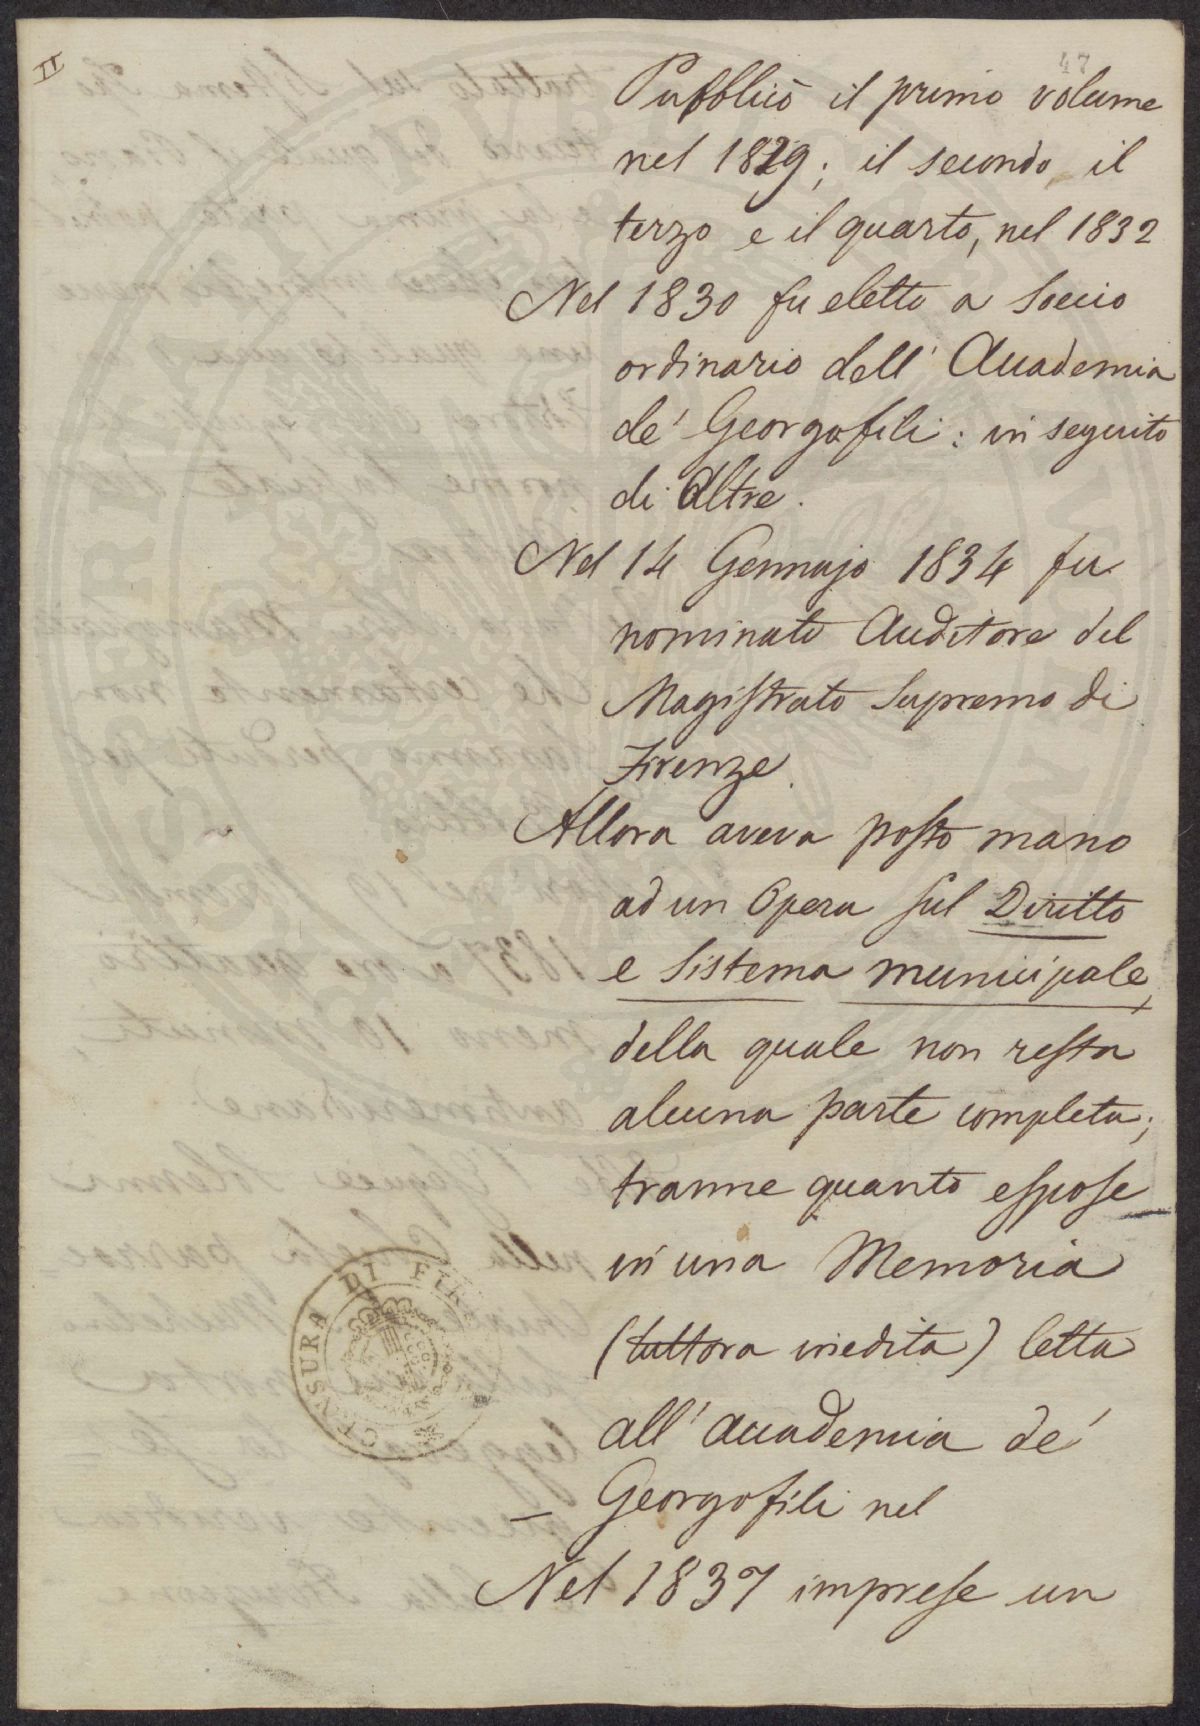 II
47
Pubblicò il primo volume
nel 1829; il secondo, il
terzo e il quarto, nel 1832
Nel 1830 fu eletto a Socio
ordinario dell' Accademia
de' Georgofili: in seguito
di altre.
Nel 14 Gennajo 1834 fu
nominato Auditore del
Magistrato Supremo di
Firenze.
Allora aveva posto mano
ad un Opera sul Diritto
e Sistema municipale,
della quale non resta
alcuna parte completa;
tranne quanto espose
in una Memoria
(tuttora inedita) letta
all' Accademia de'
Georgofili nel
CENSURA DI FIR
Nel 1837 imprese un